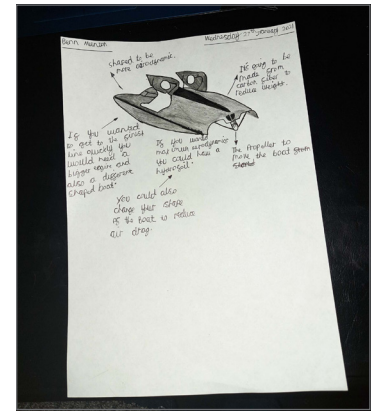 Wednesday 27th January 2021
shaped to be
more aerodynamic.
It's going to be
made from
carbon fiber to
reduce weight.
If you wanted
to get to the finish
line quickly you
would need a
bigger engine and
also a different
shaped boat.
If you want
aerodynamics
you could have a
hydrofoil.
The Propeller to
move the boat
You could also
change the shape
of the boat to reduce
air drag.